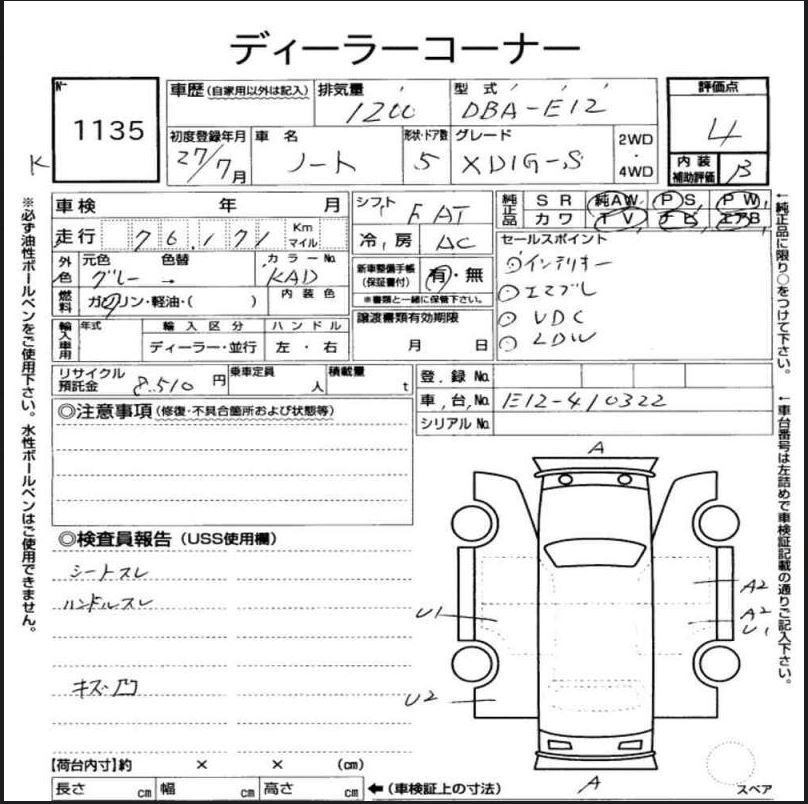 ディーラーコーナー
No.
1135
K
車歴 (自家用以外は記入)
排気量
1200
型式
DBA-E12
評価点
4
初度登録年月
27/7月
車名
ノート
形状・ドア数
5
グレード
XDIG-S
2WD
・
4WD
内装
補助評価
B
車検 年 月
シフト
FAT
純正品
SR 純AW PS PW
カワ TV ナビ エアB
走行 76,171 Km
マイル
冷房 AC
セールスポイント
①インテリキー
②エマブレ
③VDC
④LDW
外色
元色 色替
グレー →
カラーNo
KAD
新車整備手帳
(保証書付)
有・無
※書類と一緒に保管下さい。
燃料
ガソリン・軽油・( )
内装色
輸入車用
年式
輸入区分
ディーラー・並行
ハンドル
左・右
譲渡書類有効期限
月 日
リサイクル
預託金
8,510 円
乗車定員
人
積載量
t
登録No.
車台No. E12-410322
シリアルNo.
◎注意事項 (修復・不具合箇所および状態等)
◎検査員報告 (USS使用欄)
シートスレ
ハンドルスレ
キズ凹
A
A2
A2
U1
U1
U2
A
スペア
【荷台内寸】約 × × (cm)
長さ cm 幅 cm 高さ cm ←(車検証上の寸法)
※必ず油性ボールペンをご使用下さい。水性ボールペンはご使用できません。
↑純正品に限り○をつけて下さい。
↑車台番号は左詰めで車検証記載の通りご記入下さい。